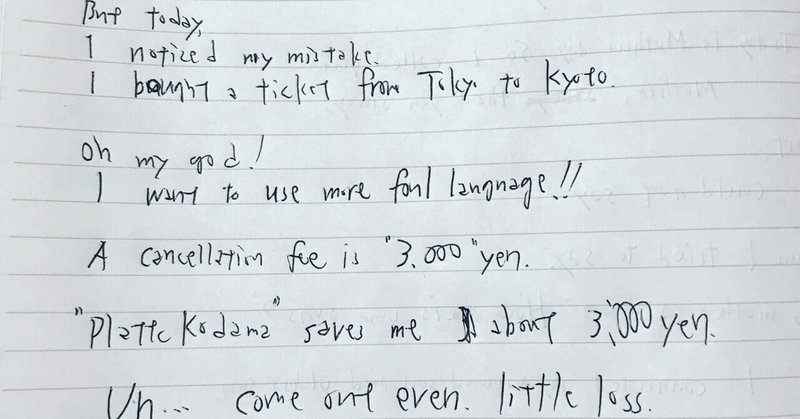 But today,
I noticed my mistake.
I bought a ticket from Tokyo to Kyoto.
Oh my god!
I want to use more foul language!!
A cancellation fee is "3.000" yen.
"Platte Kodama" saves me about 3,000 yen.
Uh... come out even. little loss.